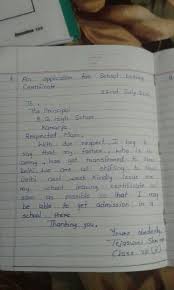 An application for School leaving
Certificate
22nd July
To,
The Principal
B.G. High School
Kamarpo
Respected Mam,
With due respect I beg to
say that my father, who is in
army, has got transferred to
Delhi. We are all shifting to
Delhi next week. Kindly issue me
my school leaving certificate as
soon as possible so that I may
be able to get admission in a
school there.
Thanking you,
Yours obediently,
Class